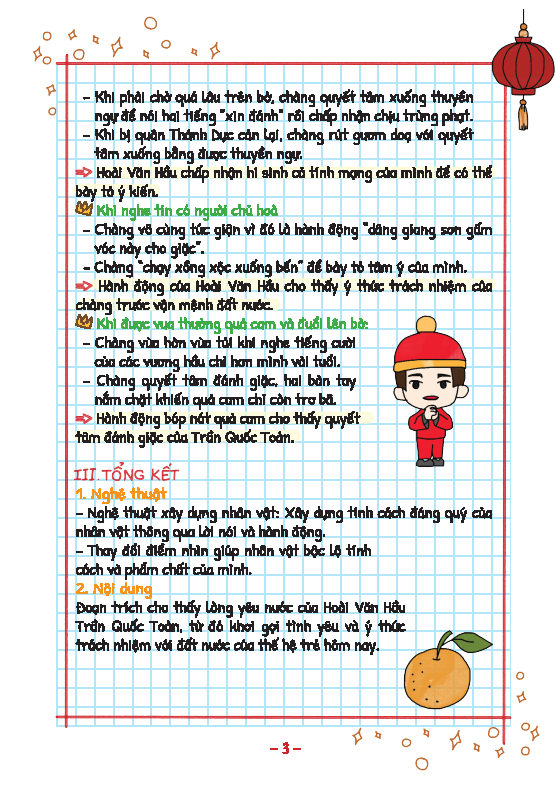 – Khi phải chờ quá lâu trên bờ, chàng quyết tâm xuống thuyền
ngự để nói hai tiếng "xin đánh" rồi chấp nhận chịu trừng phạt.
– Khi bị quân Thánh Dực cản lại, chàng rút gươm doạ với quyết
tâm xuống bằng được thuyền ngự.
⇒ Hoài Văn Hầu chấp nhận hi sinh cả tính mạng của mình để có thể
bày tỏ ý kiến.
Khi nghe tin có người chủ hoà
– Chàng vô cùng tức giận vì đó là hành động "dâng giang sơn gấm
vóc này cho giặc".
– Chàng "chạy xồng xộc xuống bến" để bày tỏ tâm ý của mình.
⇒ Hành động của Hoài Văn Hầu cho thấy ý thức trách nhiệm của
chàng trước vận mệnh đất nước.
Khi được vua thưởng quả cam và đuổi lên bờ:
– Chàng vừa hờn vừa tủi khi nghe tiếng cười
của các vương hầu chỉ hơn mình vài tuổi.
– Chàng quyết tâm đánh giặc, hai bàn tay
nắm chặt khiến quả cam chỉ còn trơ bã.
⇒ Hành động bóp nát quả cam cho thấy quyết
tâm đánh giặc của Trần Quốc Toản.
III. TỔNG KẾT
1. Nghệ thuật
– Nghệ thuật xây dựng nhân vật: Xây dựng tính cách đáng quý của
nhân vật thông qua lời nói và hành động.
– Thay đổi điểm nhìn giúp nhân vật bộc lộ tính
cách và phẩm chất của mình.
2. Nội dung
Đoạn trích cho thấy lòng yêu nước của Hoài Văn Hầu
Trần Quốc Toản, từ đó khơi gợi tình yêu và ý thức
trách nhiệm với đất nước của thế hệ trẻ hôm nay.
– 3 –